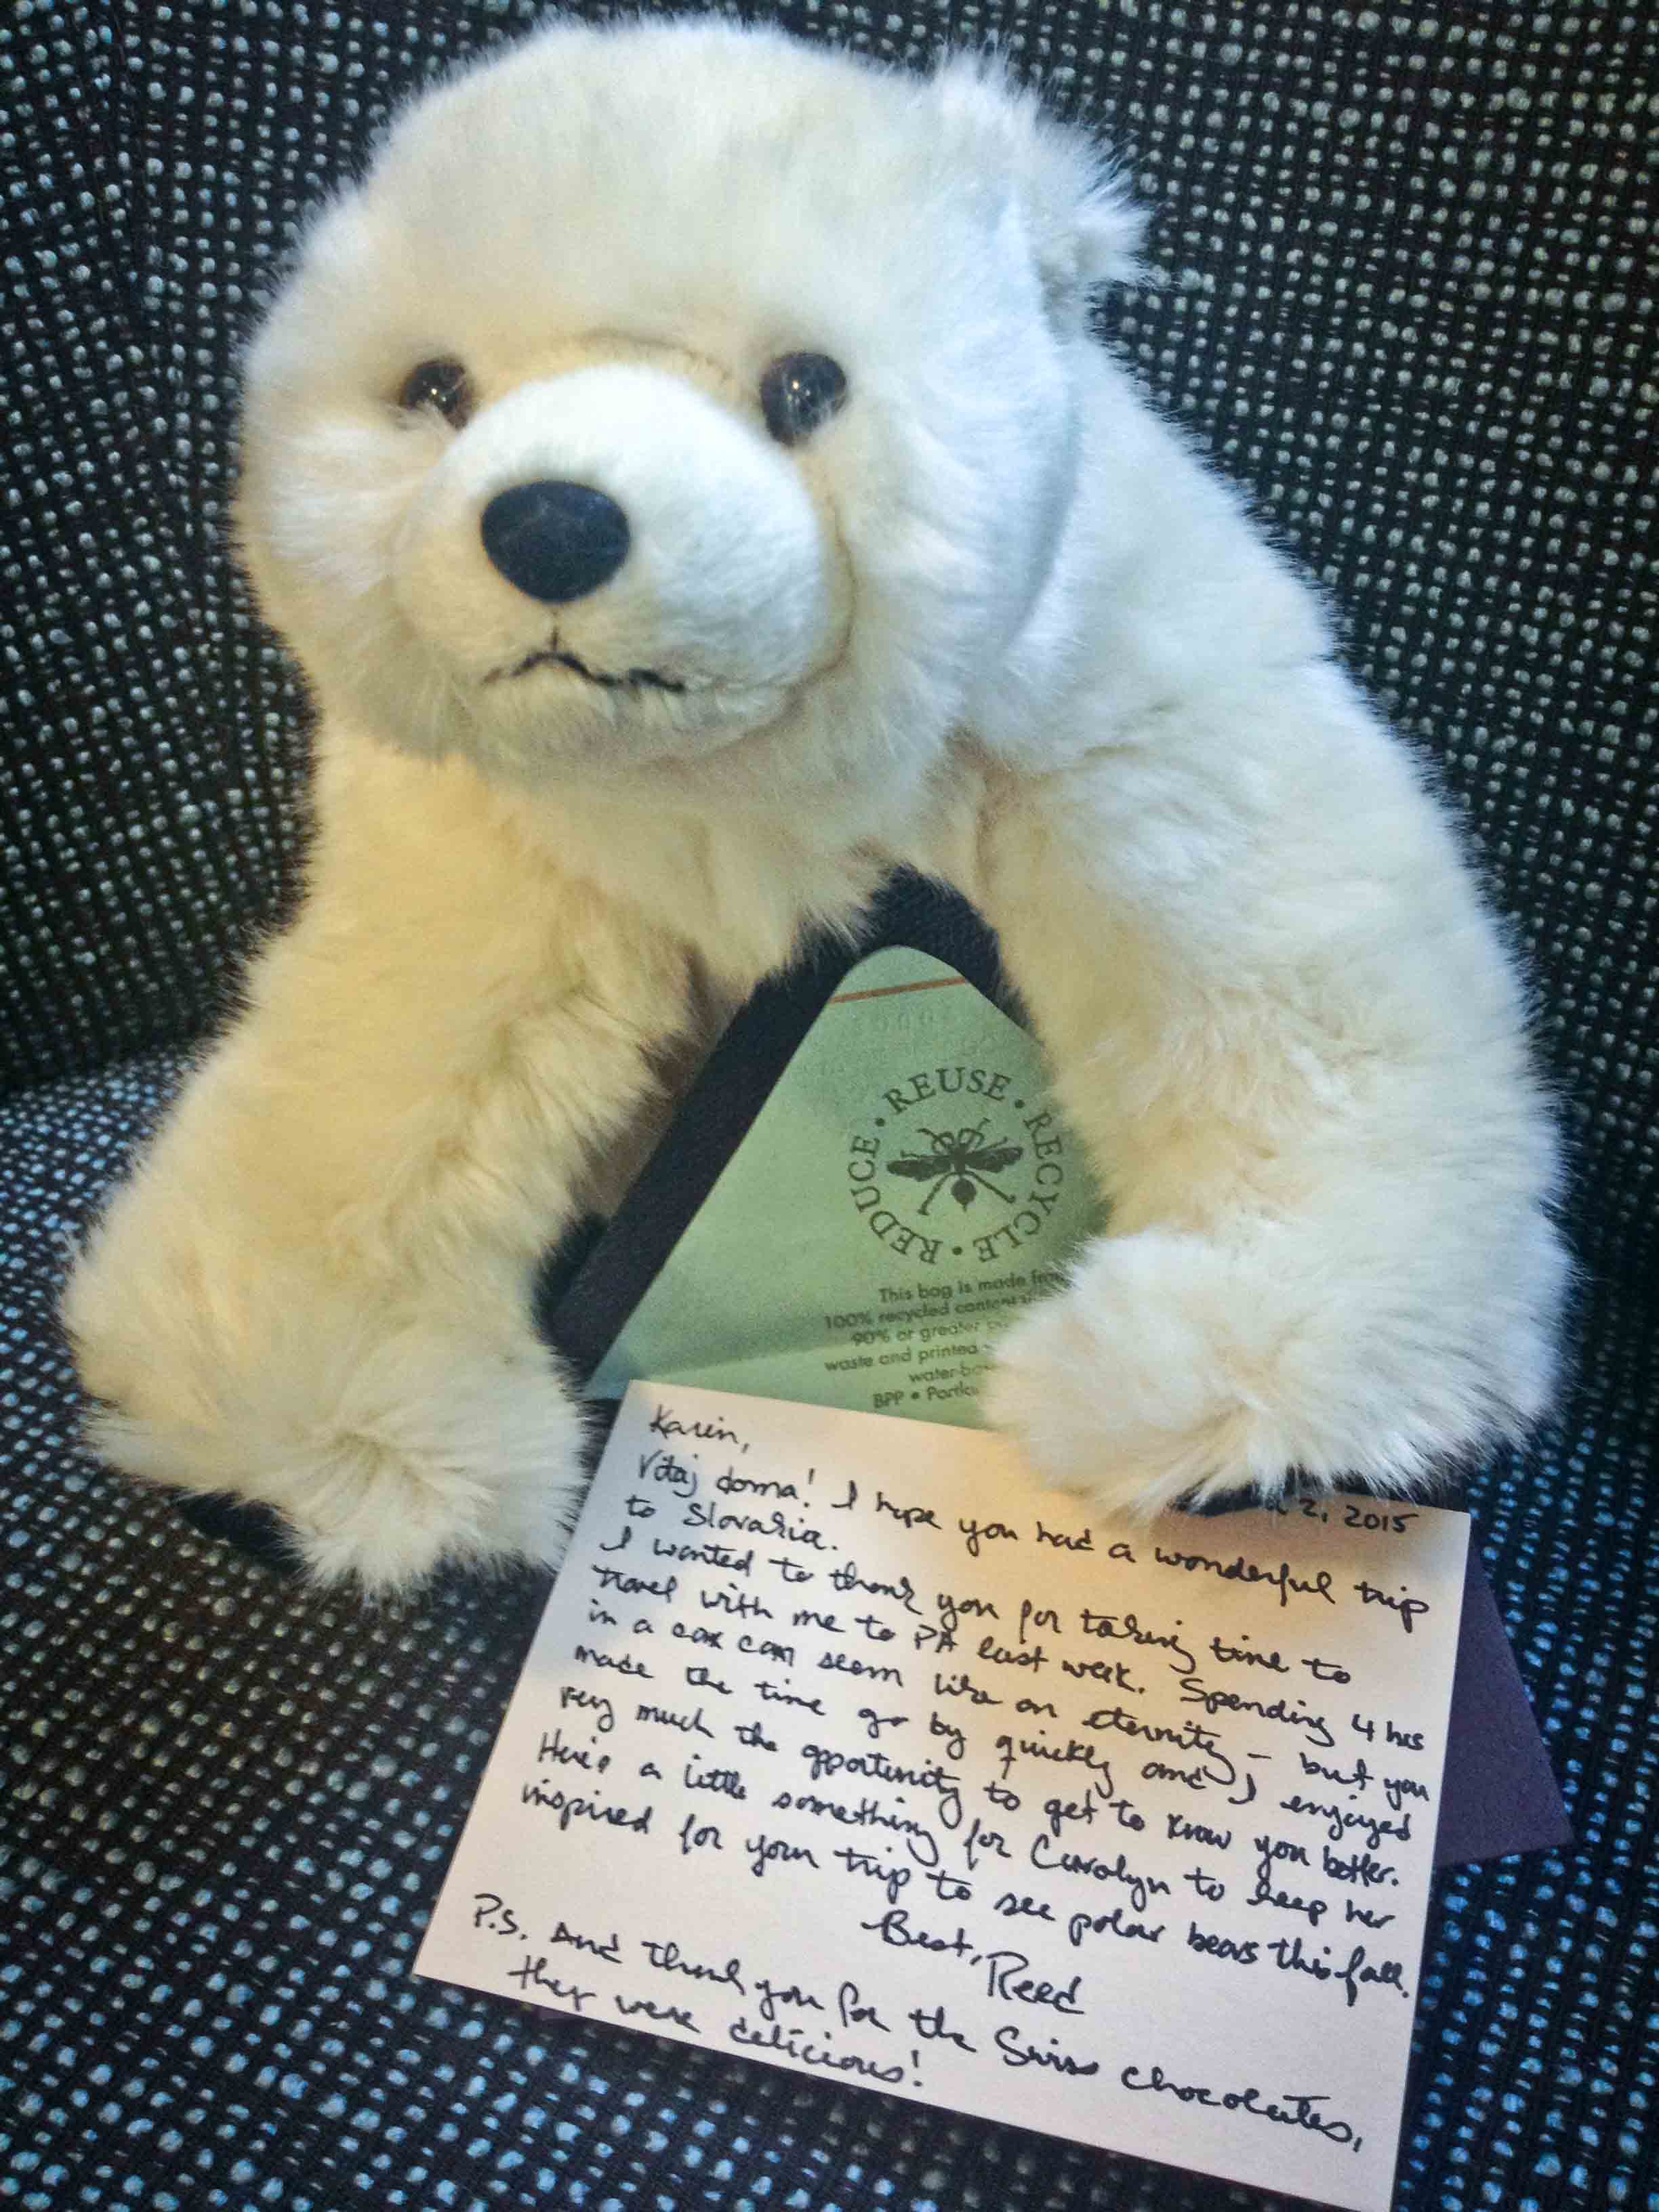 REDUCE • REUSE • RECYCLE •
This bag is made from
100% recycled content
90% or greater
waste and printed
BPP •
2, 2015
Karin,
Vitaj doma! I hope you had a wonderful trip
to Slovakia.
I wanted to thank you for taking time to
travel with me to PA last week. Spending 4 hrs
in a car can seem like an eternity – but you
made the time go by quickly and I enjoyed
very much the opportunity to get to know you better.
Here's a little something for Carolyn to keep her
inspired for your trip to see polar bears this fall.
Best, Reed
P.S. And thank you for the Swiss chocolates,
they were delicious!